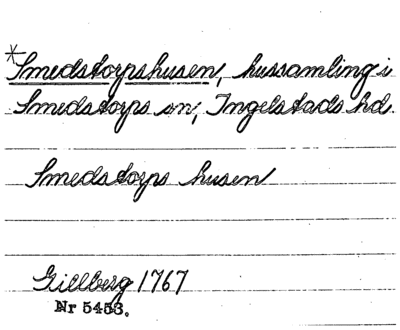 *Smedstorpshusen, hussamling i
Smedstorps sn, Ingelstads hd.
Smedstorps husen
Gillberg 1767
Nr 5453.